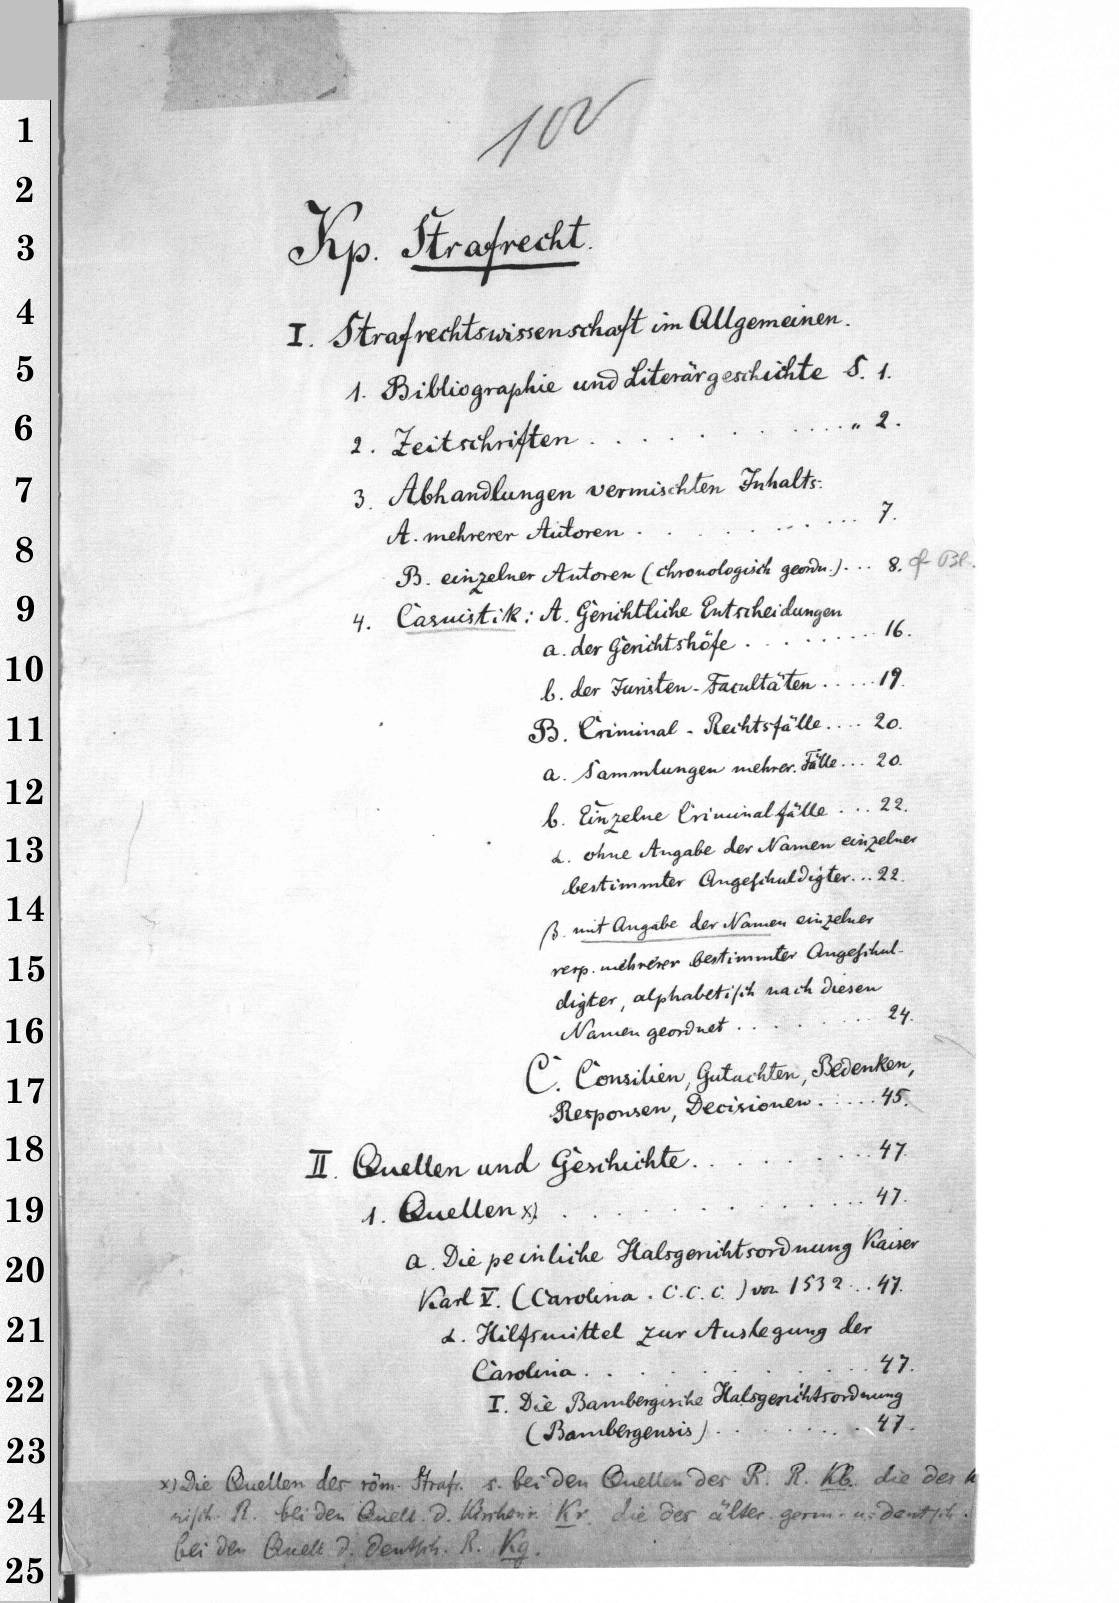 102
Kp. Strafrecht.
I. Strafrechtswissenschaft im Allgemeinen.
1. Bibliographie und Literärgeschichte S. 1.
2. Zeitschriften . . . . . . . . . . „ 2.
3. Abhandlungen vermischten Inhalts:
A. mehrerer Autoren . . . . . . . . . 7.
B. einzelner Autoren (chronologisch geordn.) . . . 8. cf Bl.
4. Casuistik: A. Gerichtliche Entscheidungen
a. der Gerichtshöfe . . . . . . . . 16.
b. der Juristen-Facultäten . . . . . 19.
B. Criminal-Rechtsfälle . . . . 20.
a. Sammlungen mehrer. Fälle . . . 20.
b. Einzelne Criminalfälle . . . 22.
α. ohne Angabe der Namen einzelner
bestimmter Angeschuldigter . . . 22.
β. mit Angabe der Namen einzelner
resp. mehrerer bestimmter Angeschul-
digter, alphabetisch nach diesen
Namen geordnet . . . . . . . . 24.
C. Consilien, Gutachten, Bedenken,
Responsen, Decisionen . . . . . 45.
II. Quellen und Geschichte . . . . . . . . 47.
1. Quellen x) . . . . . . . . . . . 47.
a. Die peinliche Halsgerichtsordnung Kaiser
Karl V. (Carolina. C. C. C.) von 1532 . . . 47.
α. Hilfsmittel zur Auslegung der
Carolina . . . . . . . . . . 47.
I. Die Bambergische Halsgerichtsordnung
(Bambergensis) . . . . . . . . 47.
x) Die Quellen des röm. Strafr. s. bei den Quellen des R. R. Kb. die des k
nisch. R. bei den Quell. d. Kirchenr. Kr. die des älter. germ. u. deutsch.
bei den Quell d. deutsch. R. Kg.
1
2
3
4
5
6
7
8
9
10
11
12
13
14
15
16
17
18
19
20
21
22
23
24
25